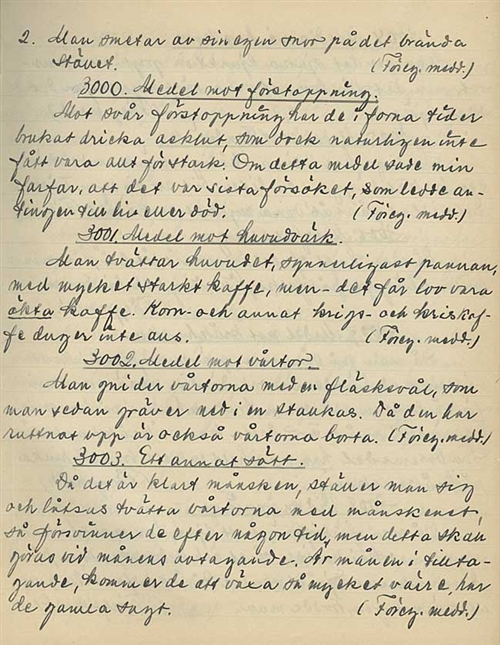 2. Man smetar av sin egen snor på det brända
stället. (Föreg. medd.)
3000. Medel mot förstoppning.
Mot svår förstoppning har de i forna tider
brukat dricka asklut, som dock naturligen inte
fått vara allt för stark. Om detta medel sade min
farfar, att det var sista försöket, som ledde an-
tingen till liv eller död. (Föreg. medd.)
3001. Medel mot huvudvärk.
Man tvättar huvudet, synnerligast pannan,
med mycket starkt kaffe, men - det får lov vara
äkta kaffe. Korn- och annat krigs- och kriskaf-
fe duger inte alls. (Föreg. medd.)
3002. Medel mot vårtor.
Man gnider vårtorna med en fläsksvål, som
man sedan gräver ned i en stackas. Då den har
ruttnat upp är också vårtorna borta. (Föreg. medd.)
3003. Ett annat sätt.
Då det är klart månsken, ställer man sig
och låtsas tvätta vårtorna med månskenet,
så försvinner de efter någon tid, men detta skall
göras vid månens avtagande. Är månen i tillta-
gande, kommer de att växa så mycket värre, har
de gamla sagt. (Föreg. medd.)